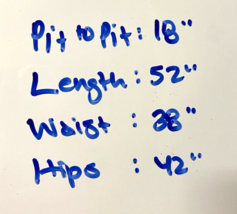 Pit to Pit: 18"
Length: 52"
Waist : 38"
Hips : 42"